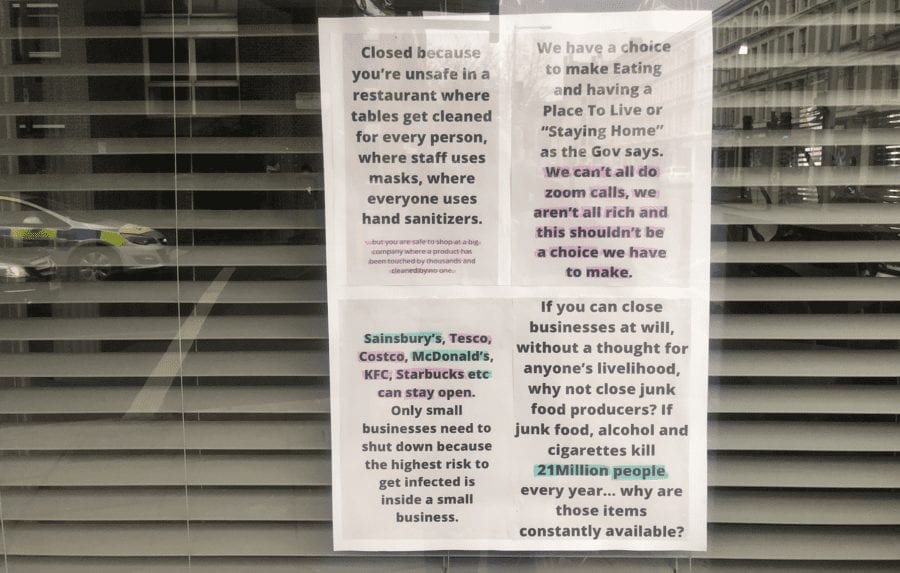 Closed because
you're unsafe in a
restaurant where
tables get cleaned
for every person,
where staff uses
masks, where
everyone uses
hand sanitizers.
...but you are safe to shop at a big
company where a product has
been touched by thousands and
cleaned by no one...
We have a choice
to make Eating
and having a
Place To Live or
“Staying Home”
as the Gov says.
We can't all do
zoom calls, we
aren't all rich and
this shouldn't be
a choice we have
to make.
Sainsbury's, Tesco,
Costco, McDonald's,
KFC, Starbucks etc
can stay open.
Only small
businesses need to
shut down because
the highest risk to
get infected is
inside a small
business.
If you can close
businesses at will,
without a thought for
anyone's livelihood,
why not close junk
food producers? If
junk food, alcohol and
cigarettes kill
21Million people
every year... why are
those items
constantly available?